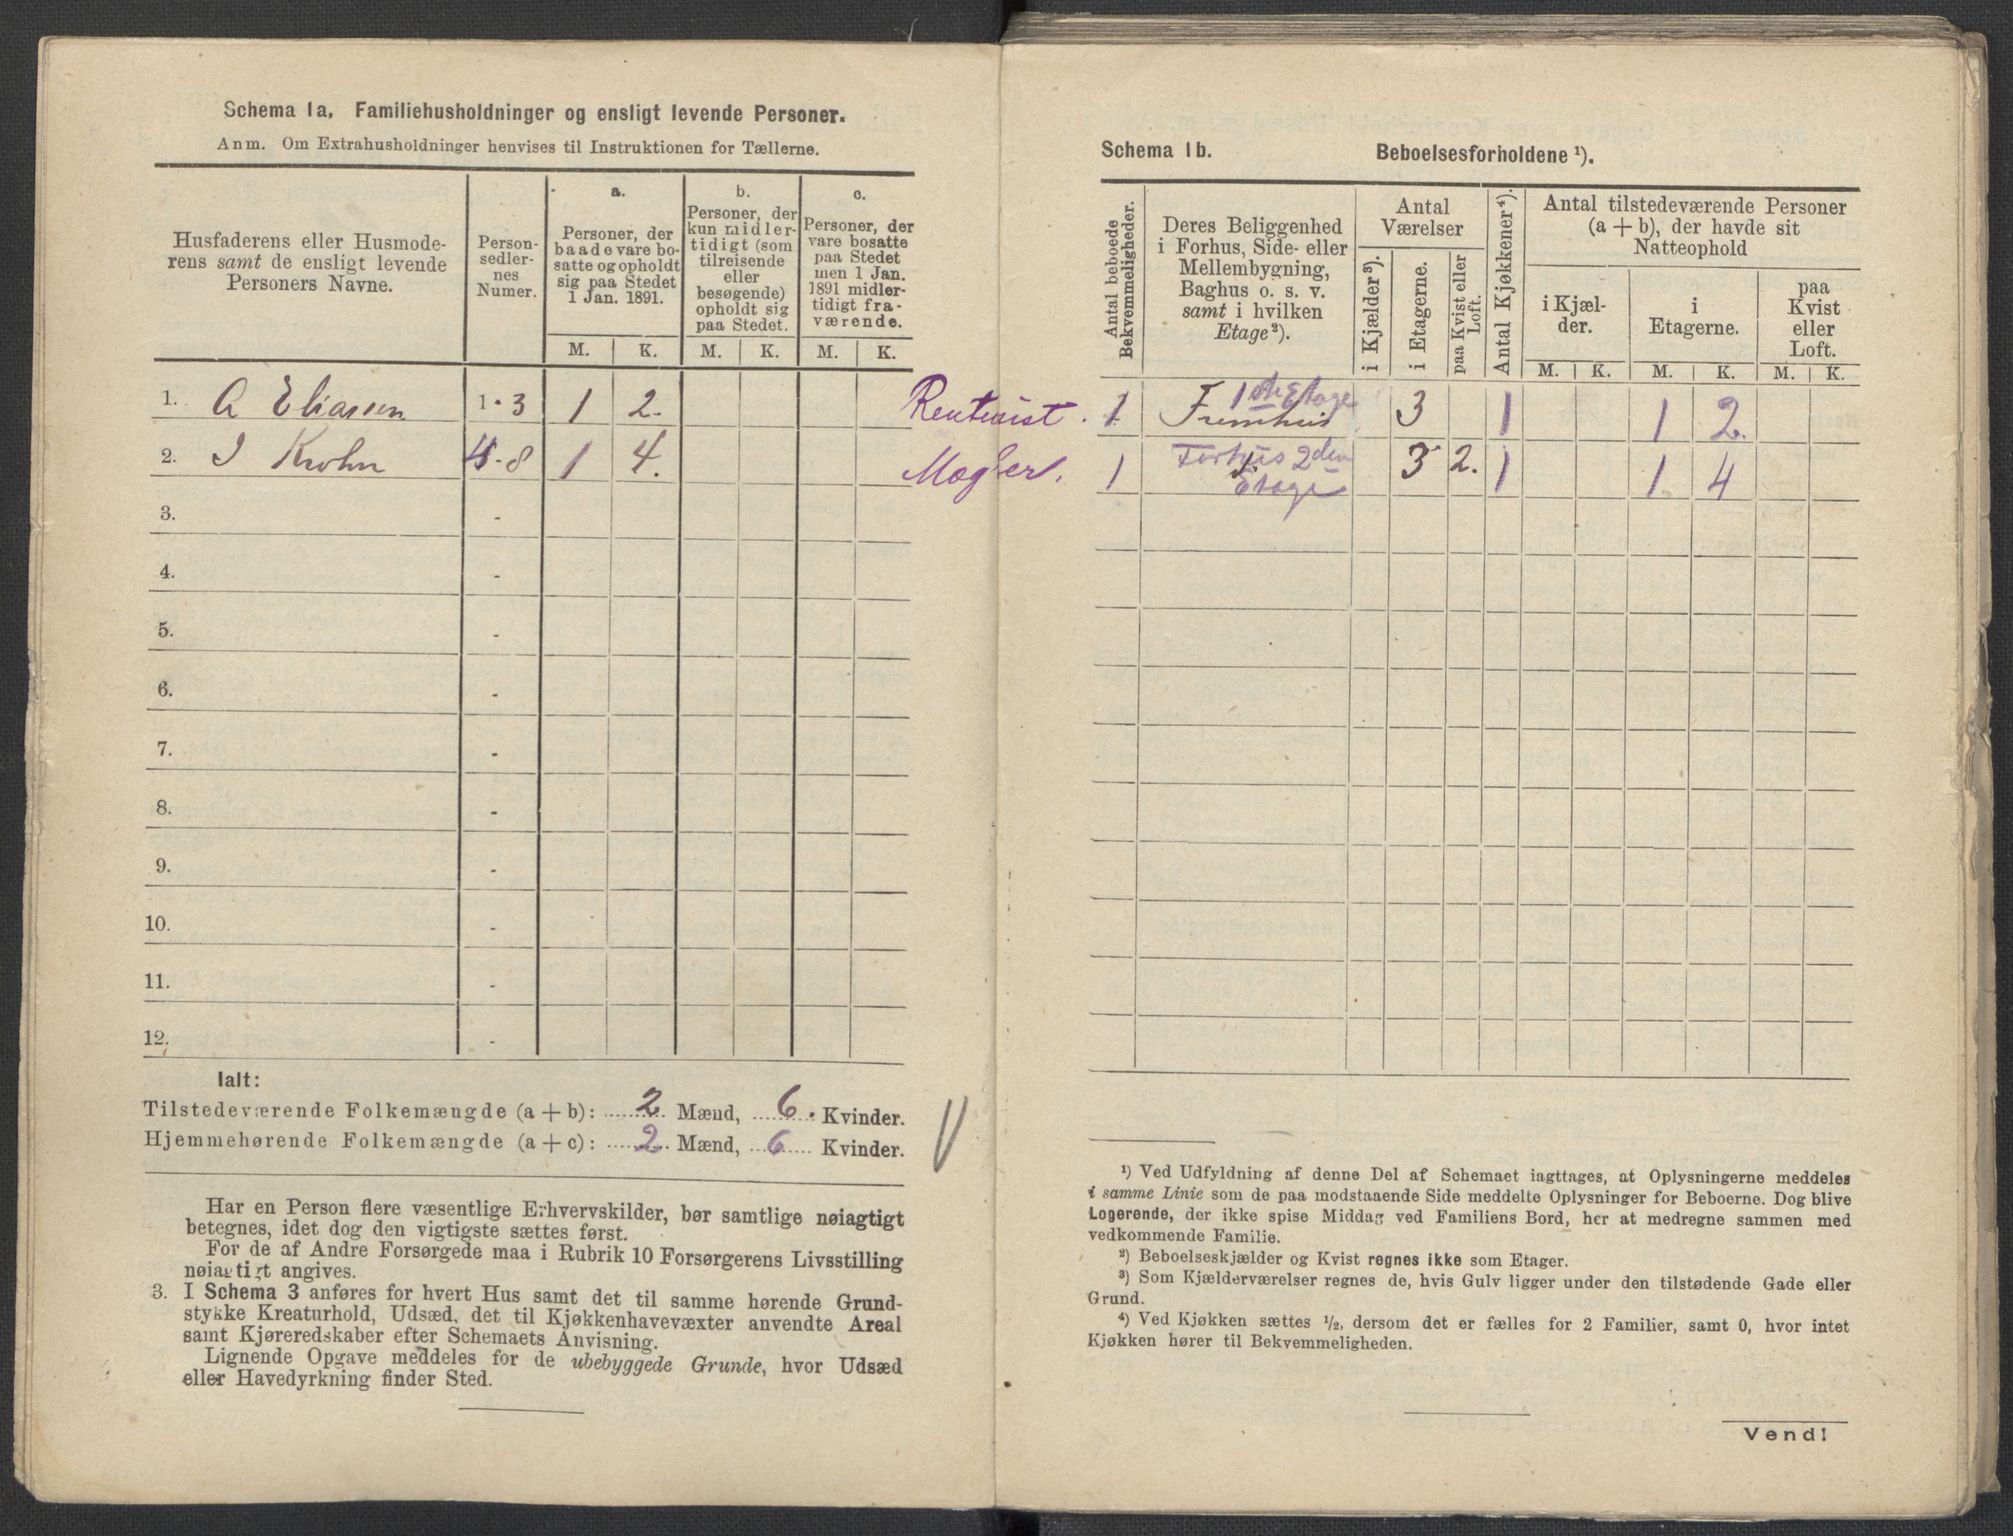 Schema 1a. Familiehusholdninger og ensligt levende Personer.
Anm. Om Extrahusholdninger henvises til Instruktionen for Tællerne.
Husfaderens eller Husmode-
rens samt de ensligt levende
Personers Navne.
Person-
sedler-
nes
Numer.
a.
Personer, der
baade vare bo-
satte og opholdt
sig paa Stedet
1 Jan. 1891.
b.
Personer, der
kun midler-
tidigt (som
tilreisende
eller
besøgende)
opholdt sig
paa Stedet.
c.
Personer, der
vare bosatte
paa Stedet
men 1 Jan.
1891 midler-
tidigt fra-
værende.
M. K. M. K. M. K.
1. A Eliassen 1 - 3 1 2. Rentenist.
2. J Krohn 4 - 8 1 4. Megler.
3. -
4. -
5. -
6. -
7. -
8. -
9. -
10. -
11. -
12. -
Ialt:
Tilstedeværende Folkemængde (a + b): 2 Mænd, 6. Kvinder.
Hjemmehørende Folkemængde (a + c): 2 Mænd, 6 Kvinder.
Har en Person flere væsentlige Erhvervskilder, bør samtlige nøiagtigt
betegnes, idet dog den vigtigste sættes først.
For de af Andre Forsørgede maa i Rubrik 10 Forsørgerens Livsstilling
nøiagtigt angives.
3. I Schema 3 anføres for hvert Hus samt det til samme hørende Grund-
stykke Kreaturhold, Udsæd, det til Kjøkkenhavevæxter anvendte Areal
samt Kjøreredskaber efter Schemaets Anvisning.
Lignende Opgave meddeles for de ubebyggede Grunde, hvor Udsæd
eller Havedyrkning finder Sted.
Schema 1b. Beboelsesforholdene ¹).
Antal beboede
Bekvemmeligheder.
Deres Beliggenhed
i Forhus, Side- eller
Mellembygning,
Baghus o. s. v.
samt i hvilken
Etage²).
Antal
Værelser
i Kjælder³).
i Etagerne.
paa Kvist eller
Loft.
Antal Kjøkkener⁴).
Antal tilstedeværende Personer
(a + b), der havde sit
Natteophold
i Kjæl-
der.
i
Etagerne.
paa
Kvist
eller
Loft.
M. K. M. K. M. K.
1ste Etage
1 Fremhus 3 1 1 2.
1 Forhus 2den 3 2. 1 1 4
Etage
¹) Ved Udfyldning af denne Del af Schemaet iagttages, at Oplysningerne meddeles
i samme Linie som de paa modstaaende Side meddelte Oplysninger for Beboerne. Dog blive
Logerende, der ikke spise Middag ved Familiens Bord, her at medregne sammen med
vedkommende Familie.
²) Beboelseskjælder og Kvist regnes ikke som Etager.
³) Som Kjælderværelser regnes de, hvis Gulv ligger under den tilstødende Gade eller
Grund.
⁴) Ved Kjøkken sættes ½, dersom det er fælles for 2 Familier, samt 0, hvor intet
Kjøkken hører til Bekvemmeligheden.
Vend!